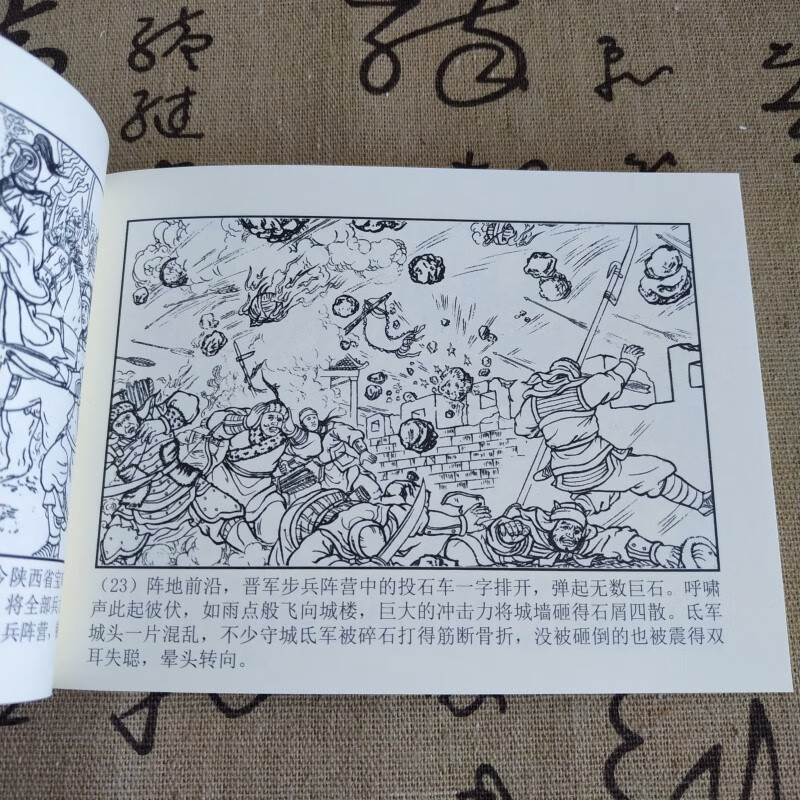 今陕西省宝
将全部兵
兵阵营,
(23) 阵地前沿，晋军步兵阵营中的投石车一字排开，弹起无数巨石。呼啸
声此起彼伏，如雨点般飞向城楼，巨大的冲击力将城墙砸得石屑四散。氐军
城头一片混乱，不少守城氐军被碎石打得筋断骨折，没被砸倒的也被震得双
耳失聪，晕头转向。